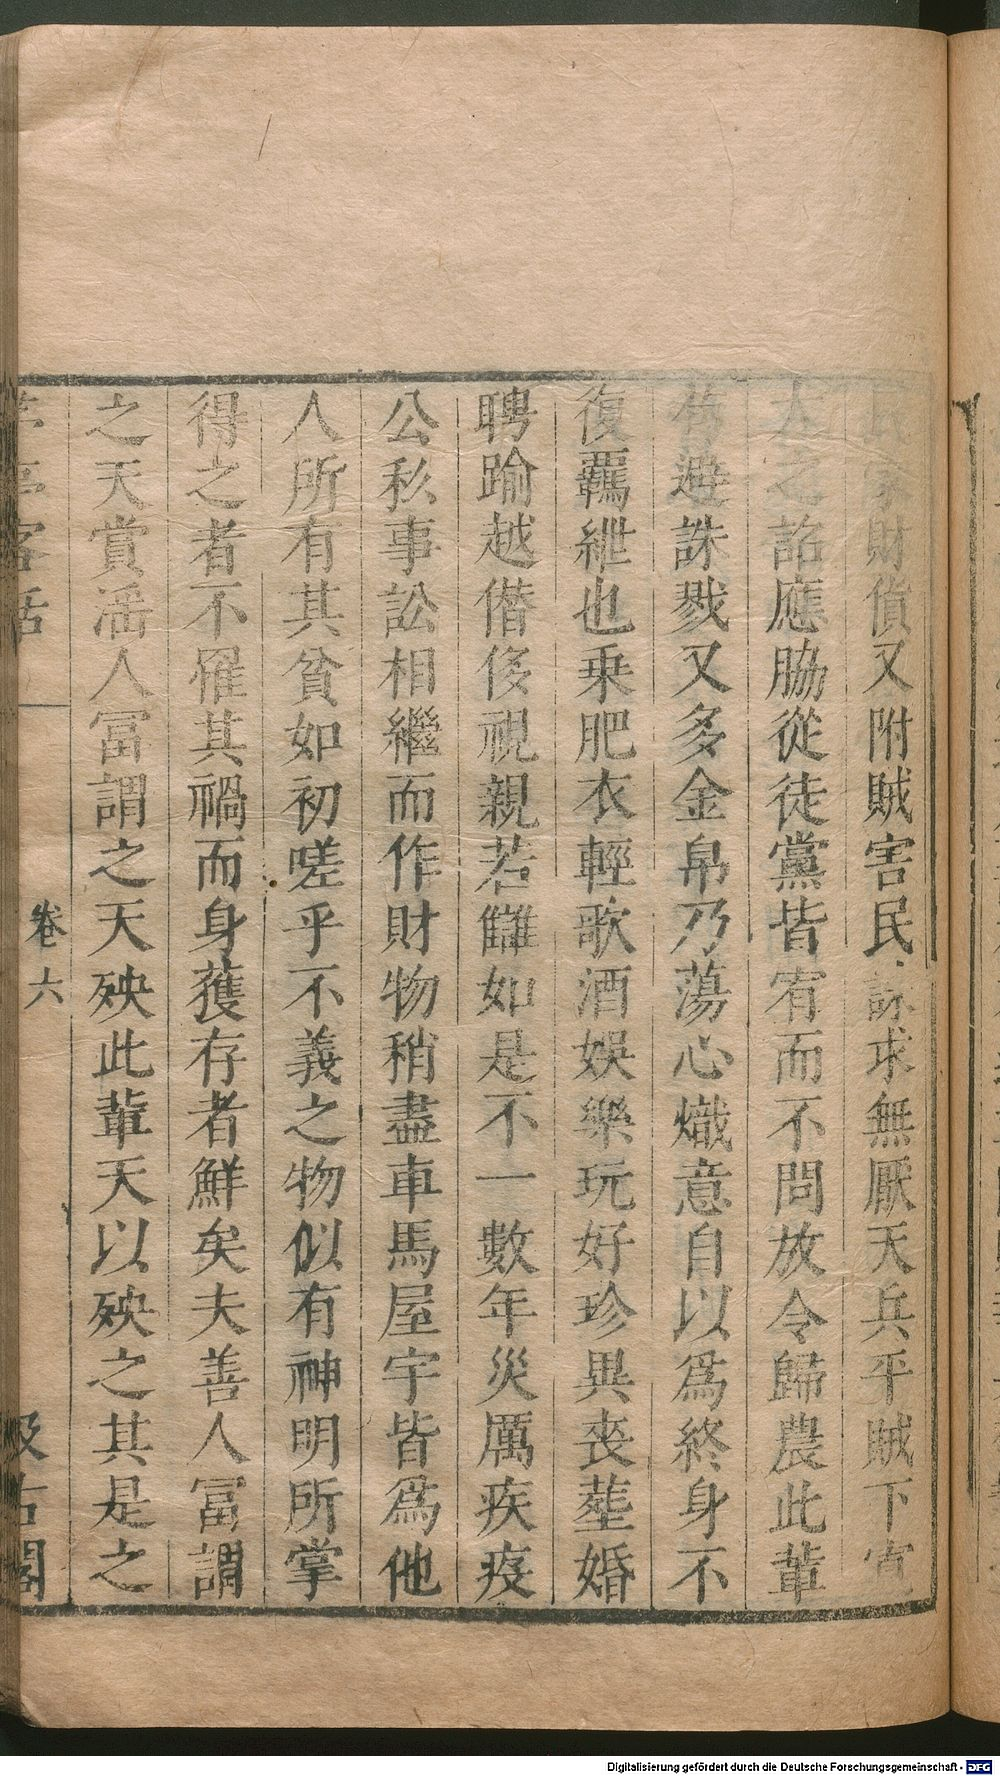 民家財貨又附賊害民誅求無厭天兵平賊下寛
大之詔應脇從徒黨皆宥而不問放令歸農此軰
旣避誅戮又多金帛乃蕩心熾意自以爲終身不
復羈紲也乗肥衣輕歌酒娛樂玩好珍異喪塟婚
聘踰越僣侈視親若讎如是不一數年災厲疾疫
公私事訟相繼而作財物稍盡車馬屋宇皆爲他
人所有其貧如初嗟乎不義之物似有神明所掌
得之者不罹其禍而身獲存者鮮矣夫善人冨謂
之天賞滛人冨謂之天殃此軰天以殃之其是之
茅亭客話 卷六 汲古閣
Digitalisierung gefördert durch die Deutsche Forschungsgemeinschaft - DFG